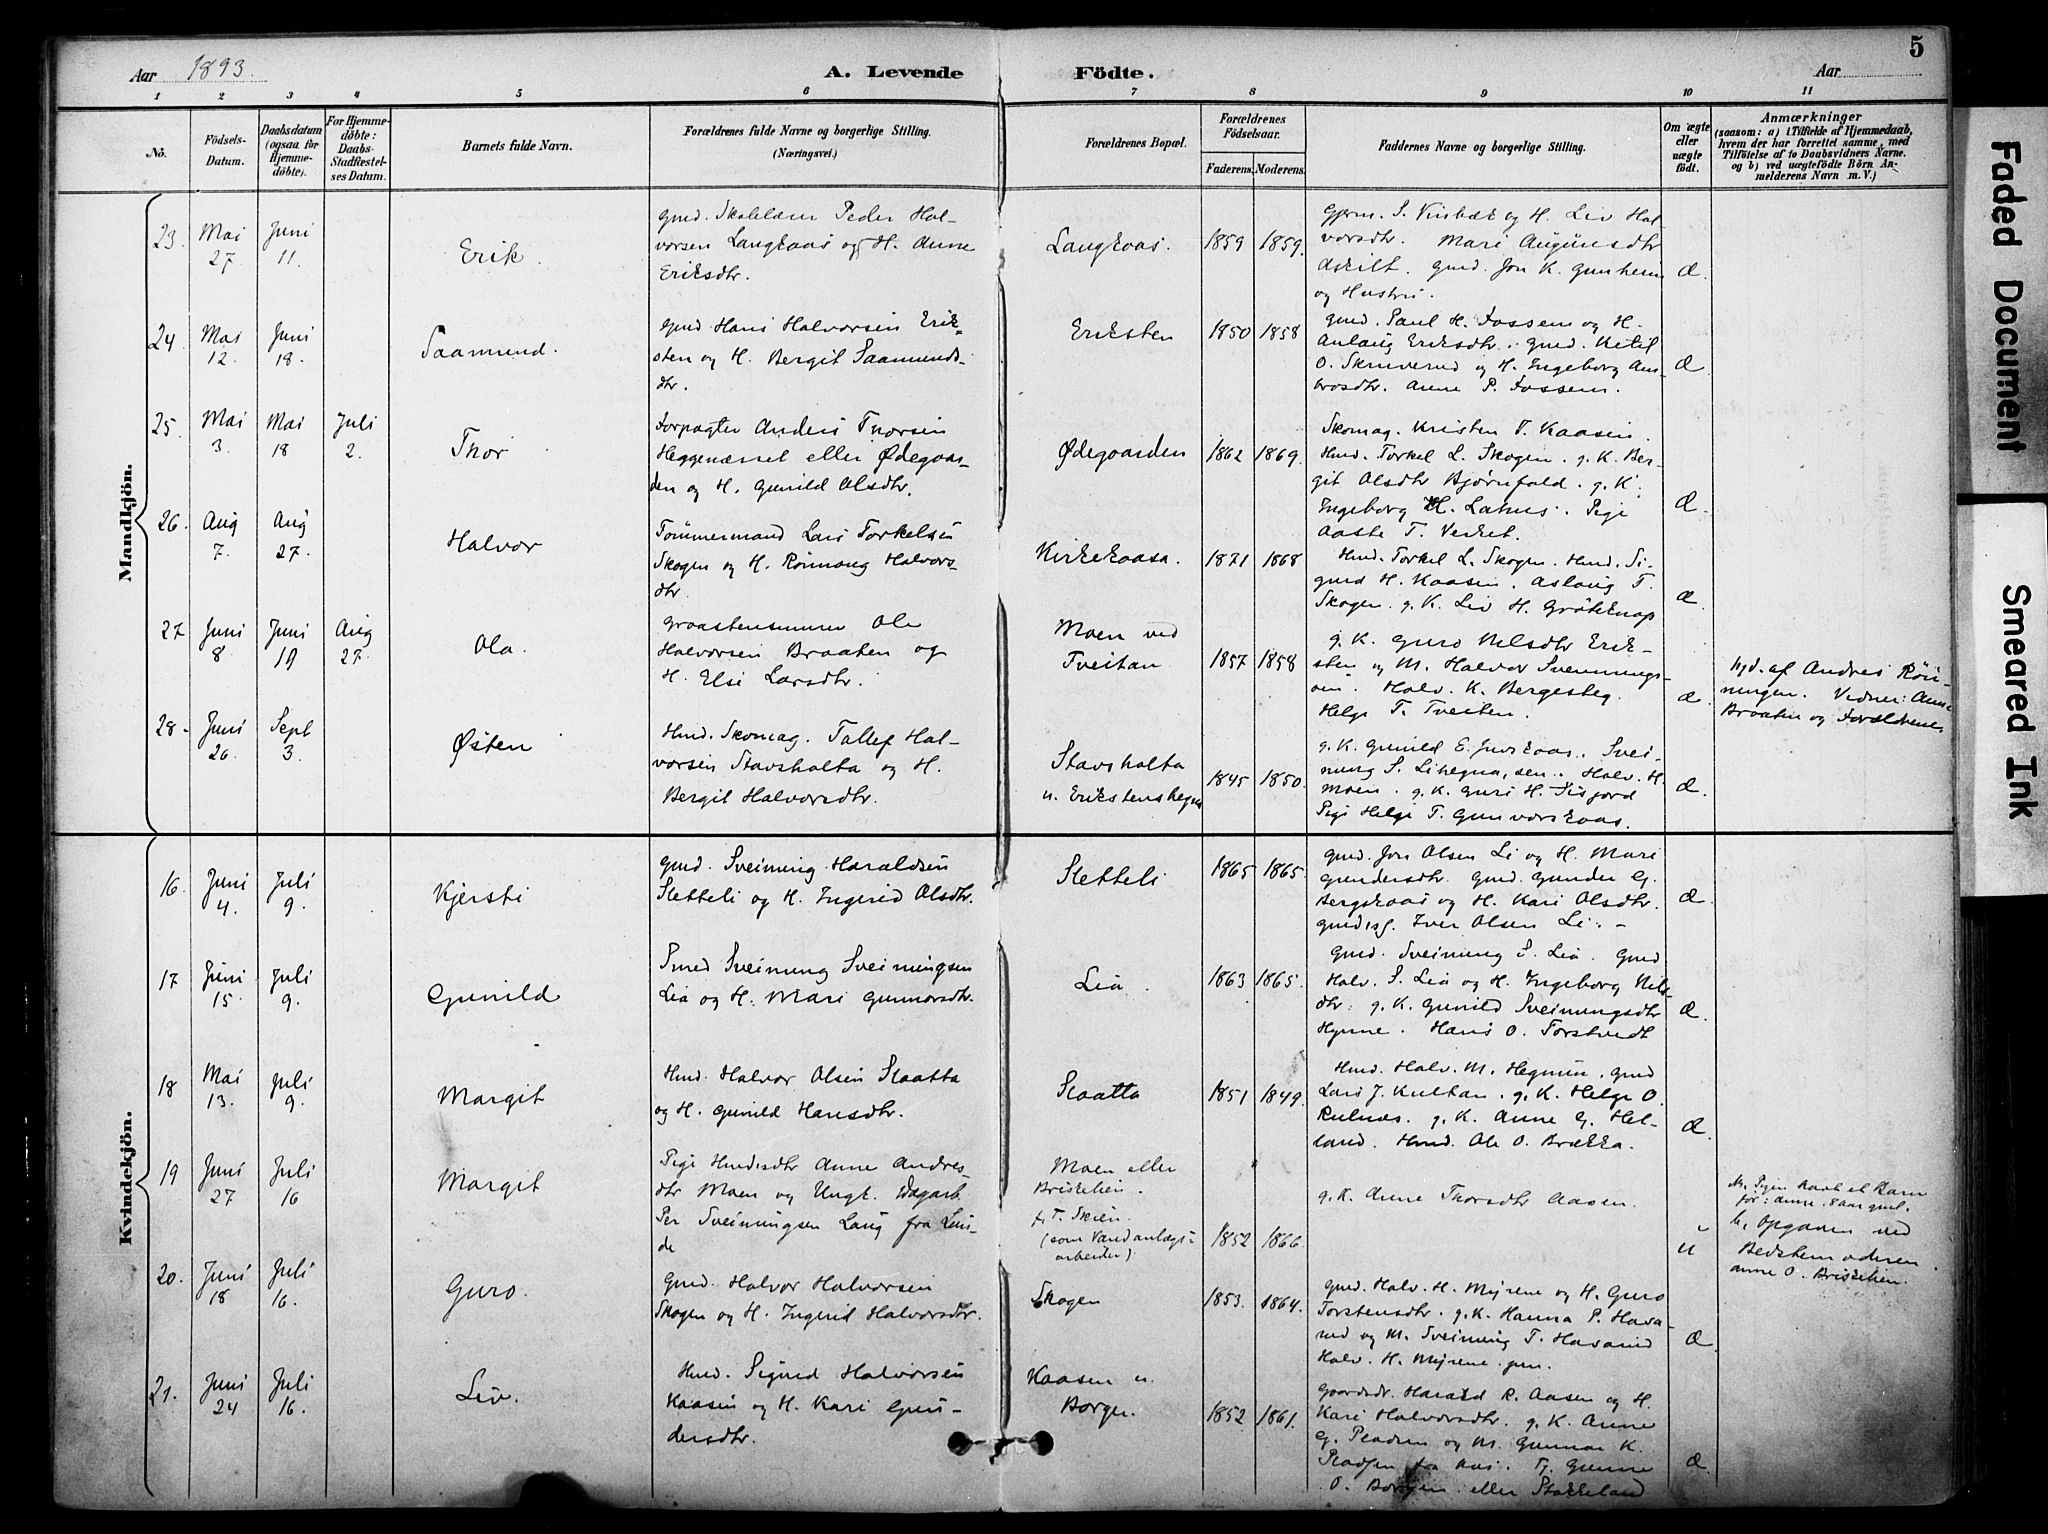 Aar 1893.
A. Levende Födte.
Aar
5
1 2 3 4 5 6 7 8 9 10 11
No.
Födsels-
Datum.
Daabsdatum
(ogsaa for
Hjemme-
döbte).
For Hjemme-
döbte:
Daabs-
Stadfæstel-
ses Datum.
Barnets fulde Navn.
Forældrenes fulde Navne og borgerlige Stilling.
(Næringsvei.)
Forældrenes Bopæl.
Forældrenes
Födselsaar.
Faderens. Moderens.
Faddernes Navne og borgerlige Stilling.
Om ægte
eller
uægte
født.
Anmærkninger
(saasom: a) i Tilfælde af Hjemmedaab,
hvem der har forrettet samme, med
Tilföielse af to Daabsvidners Navne.
og b) ved uægtefödte Börn An-
melderens Navn m. V.)
Mandkjön.
23.
Mai
27
Juni
11.
Erik.
Gmd. Peder Hal-
vorsen Langkaas og H. Anne
Eriksdtr.
Langkaas.
1859 1859.
og H. Liv Hal-
vorsdtr. Mari
gmd. Jon K. Gunheim
og Hustru.
Æ.
24.
Mai
12.
Juni
18.
Saamund.
Gmd. Hans Halvorsen Erik-
sten og H. Bergit Saamunds-
dtr.
Eriksten
1850 1858
gmd. Paul H. Fossem og H.
Aslaug Eriksdtr. gmd. Ketil
O. Skruverud og H. Ingeborg Am-
brosdtr. Anne P. Fossem.
Æ.
25.
Mai
3.
Mai
18
Juli
2.
Thor
Forpagter Anders Thorsen
Heggenæsset eller Ødegaar-
den og H. Gunild Olsdtr.
Ødegaarden
1862 1869.
Skomag. Kristen T. Kaasen.
Hmd. Torkel L. Skogen. g. K. Ber-
git Olsdtr Bjørnfald. g. K.
Ingeborg H. Lahus. Pige
Aaste T. Verket.
Æ.
26.
Aug
7.
Aug
27.
Halvor
Tömmermand Lars Torkelsen
Skogen og H. Rönnaug Halvors-
dtr.
Kirkekaasa.
1871 1868
Hmd. Torkel L. Skogen. Hmd. Si-
gurd H. Kaasen. Aslaug T.
Skogen. g. K. Liv H. Grötknap
Æ.
27
Juni
8
Juni
19
Aug
27.
Ola.
Graastensmurer Ole
Halvorsen Braaten og
H. Else Larsdtr.
Moen ved
Tveitan
1857 1858
g. K. Guro Nelsdtr Erik-
sten og M. Halvor Sveinungs-
sen. Halv. K. Bergesteg.
Helge T. Tveiten.
Æ.
Hjd. af Andres Rön-
ningen. Vidner: Anne
Braaten og Forældrene.
28.
Juni
26
Sept
3.
Østen
Hmd. Skomag. Tallef Hal-
vorsen Stavsholta og H.
Bergit Halvorsdtr.
Stavsholta
u. Erikstenshegna
1845 1850.
g. K. Gunild E. Svei-
nung S. Lihegna, sen. Halv. H.
Moen. g. K. Guri H.
Pige Helge T. Gunvorskaas.
Æ.
Kvindekjön.
16.
Juni
4.
Juli
9.
Kjersti
Gmd. Sveinung Haraldsen
Sletteli og H. Ingerid Olsdtr.
Sletteli
1865 1865.
Gmd. Jon Olsen Li og H. Mari
Gundersdtr. Gmd. Gunder G.
Bergskaas og H. Kari Olsdtr.
Iver Olsen Li.
Æ.
17
Juni
15.
Juli
9.
Gunild
Smed Sveinung Sveinungsen
Lia og H. Mari Gunnarsdtr.
Lia.
1863 1865.
Gmd. Sveinung S. Lia. Gmd
Halv. S. Lia og H. Ingeborg Nils-
dtr. g. K. Gunild Sveinungsdtr
Hynne. Hans O. Torstvedt
Æ.
18
Mai
13.
Juli
9.
Margit
Hmd. Halvor Olsen Slaatta
og H. Gunild Hansdtr.
Slaatta
1851 1849.
Hmd. Halv. M. Hegnin. gmd
Lars J. Kultan. g. K. Helge O.
Rulnæs. g. K. Anne G. Hel-
land. Hmd. Ole O. Brækka.
Æ.
19
Juni
27
Juli
16
Margit
Pige Anne Andres-
dtr Moen og Ungk. Dagarb.
Per Sveinungsen Laug fra Lun-
de
Moen eller
Briskelien.
f. T. Skien.
(som Vandanlægs-
arbeider)
1852 1866.
g. K. Anne Thorsdtr Aasen.
u
M. Pigen havt et Barn
før: Anne. 8 aar gml.
b. Opgaven ved
Bedstemoderen
Anne O. Briskelien.
20.
Juni
18
Juli
16.
Guro.
Gmd. Halvor Halvorsen
Skogen og H. Ingerid Halvorsdtr.
Skogen
1853. 1864.
Gmd. Halv. H. Myrene og H. Guro
Torstensdtr. g. K. Hanna P. Hava-
rud og M. Sveinung T. Havarud
Halv. H. Myrene jun.
Æ.
21.
Juni
24
Juli
16.
Liv.
Hmd. Sigurd Halvorsen
Kaasen og H. Kari Gun-
dersdtr.
Kaasen u.
Borgen.
1852. 1861.
Gaardsdr. Harald R. Aasen og H.
Kari Halvorsdtr. g. K. Anne
G. og M. Gunnar K.
fra Aas. Gunne
O. Borgen eller Stokkeland
Æ.
Faded Document
Smeared Ink